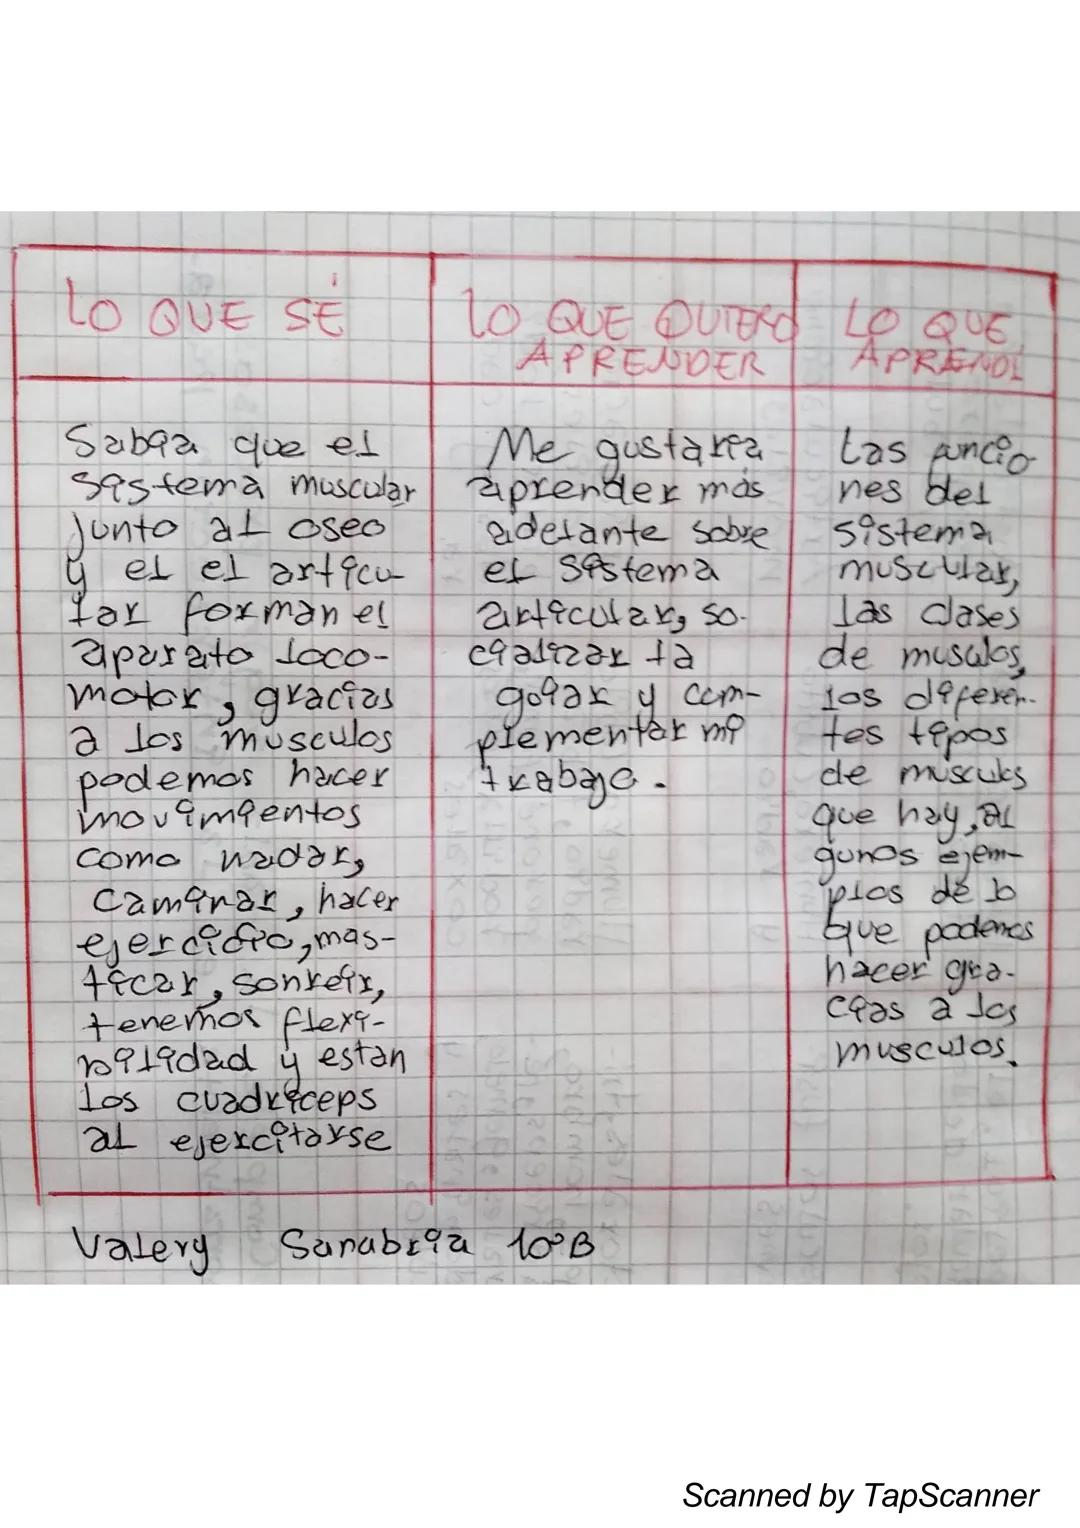 LO QUE SÉ
Sabia que el
sistema muscular
junto al oseo
y el el articu-
lar forman el
aparato loco-
motor, gracias
a los musculos
podemos hacer
movimientos
como nadar,
caminar, hacer
ejercicio, mas-
ticar, sonreir,
tenemos flexi-
bilidad y estan
los cuadriceps
al ejercitarse
LO QUE QUIERO
APRENDER
Me gustaria
aprender más
adelante sobre
el sistema
articular, so-
cializar la
y com-
plementar mi
trabajo.
LO QUE
APRENDI
Las funcio-
nes del
sistema
muscular,
las clases
de musculos,
los diferen-
tes tipos
de musculos
que hay, al
gunos ejem-
plos de lo
que podemos
hacer gra-
cias a los
musculos.
Valery Sanabria 10°B
Scanned by TapScanner